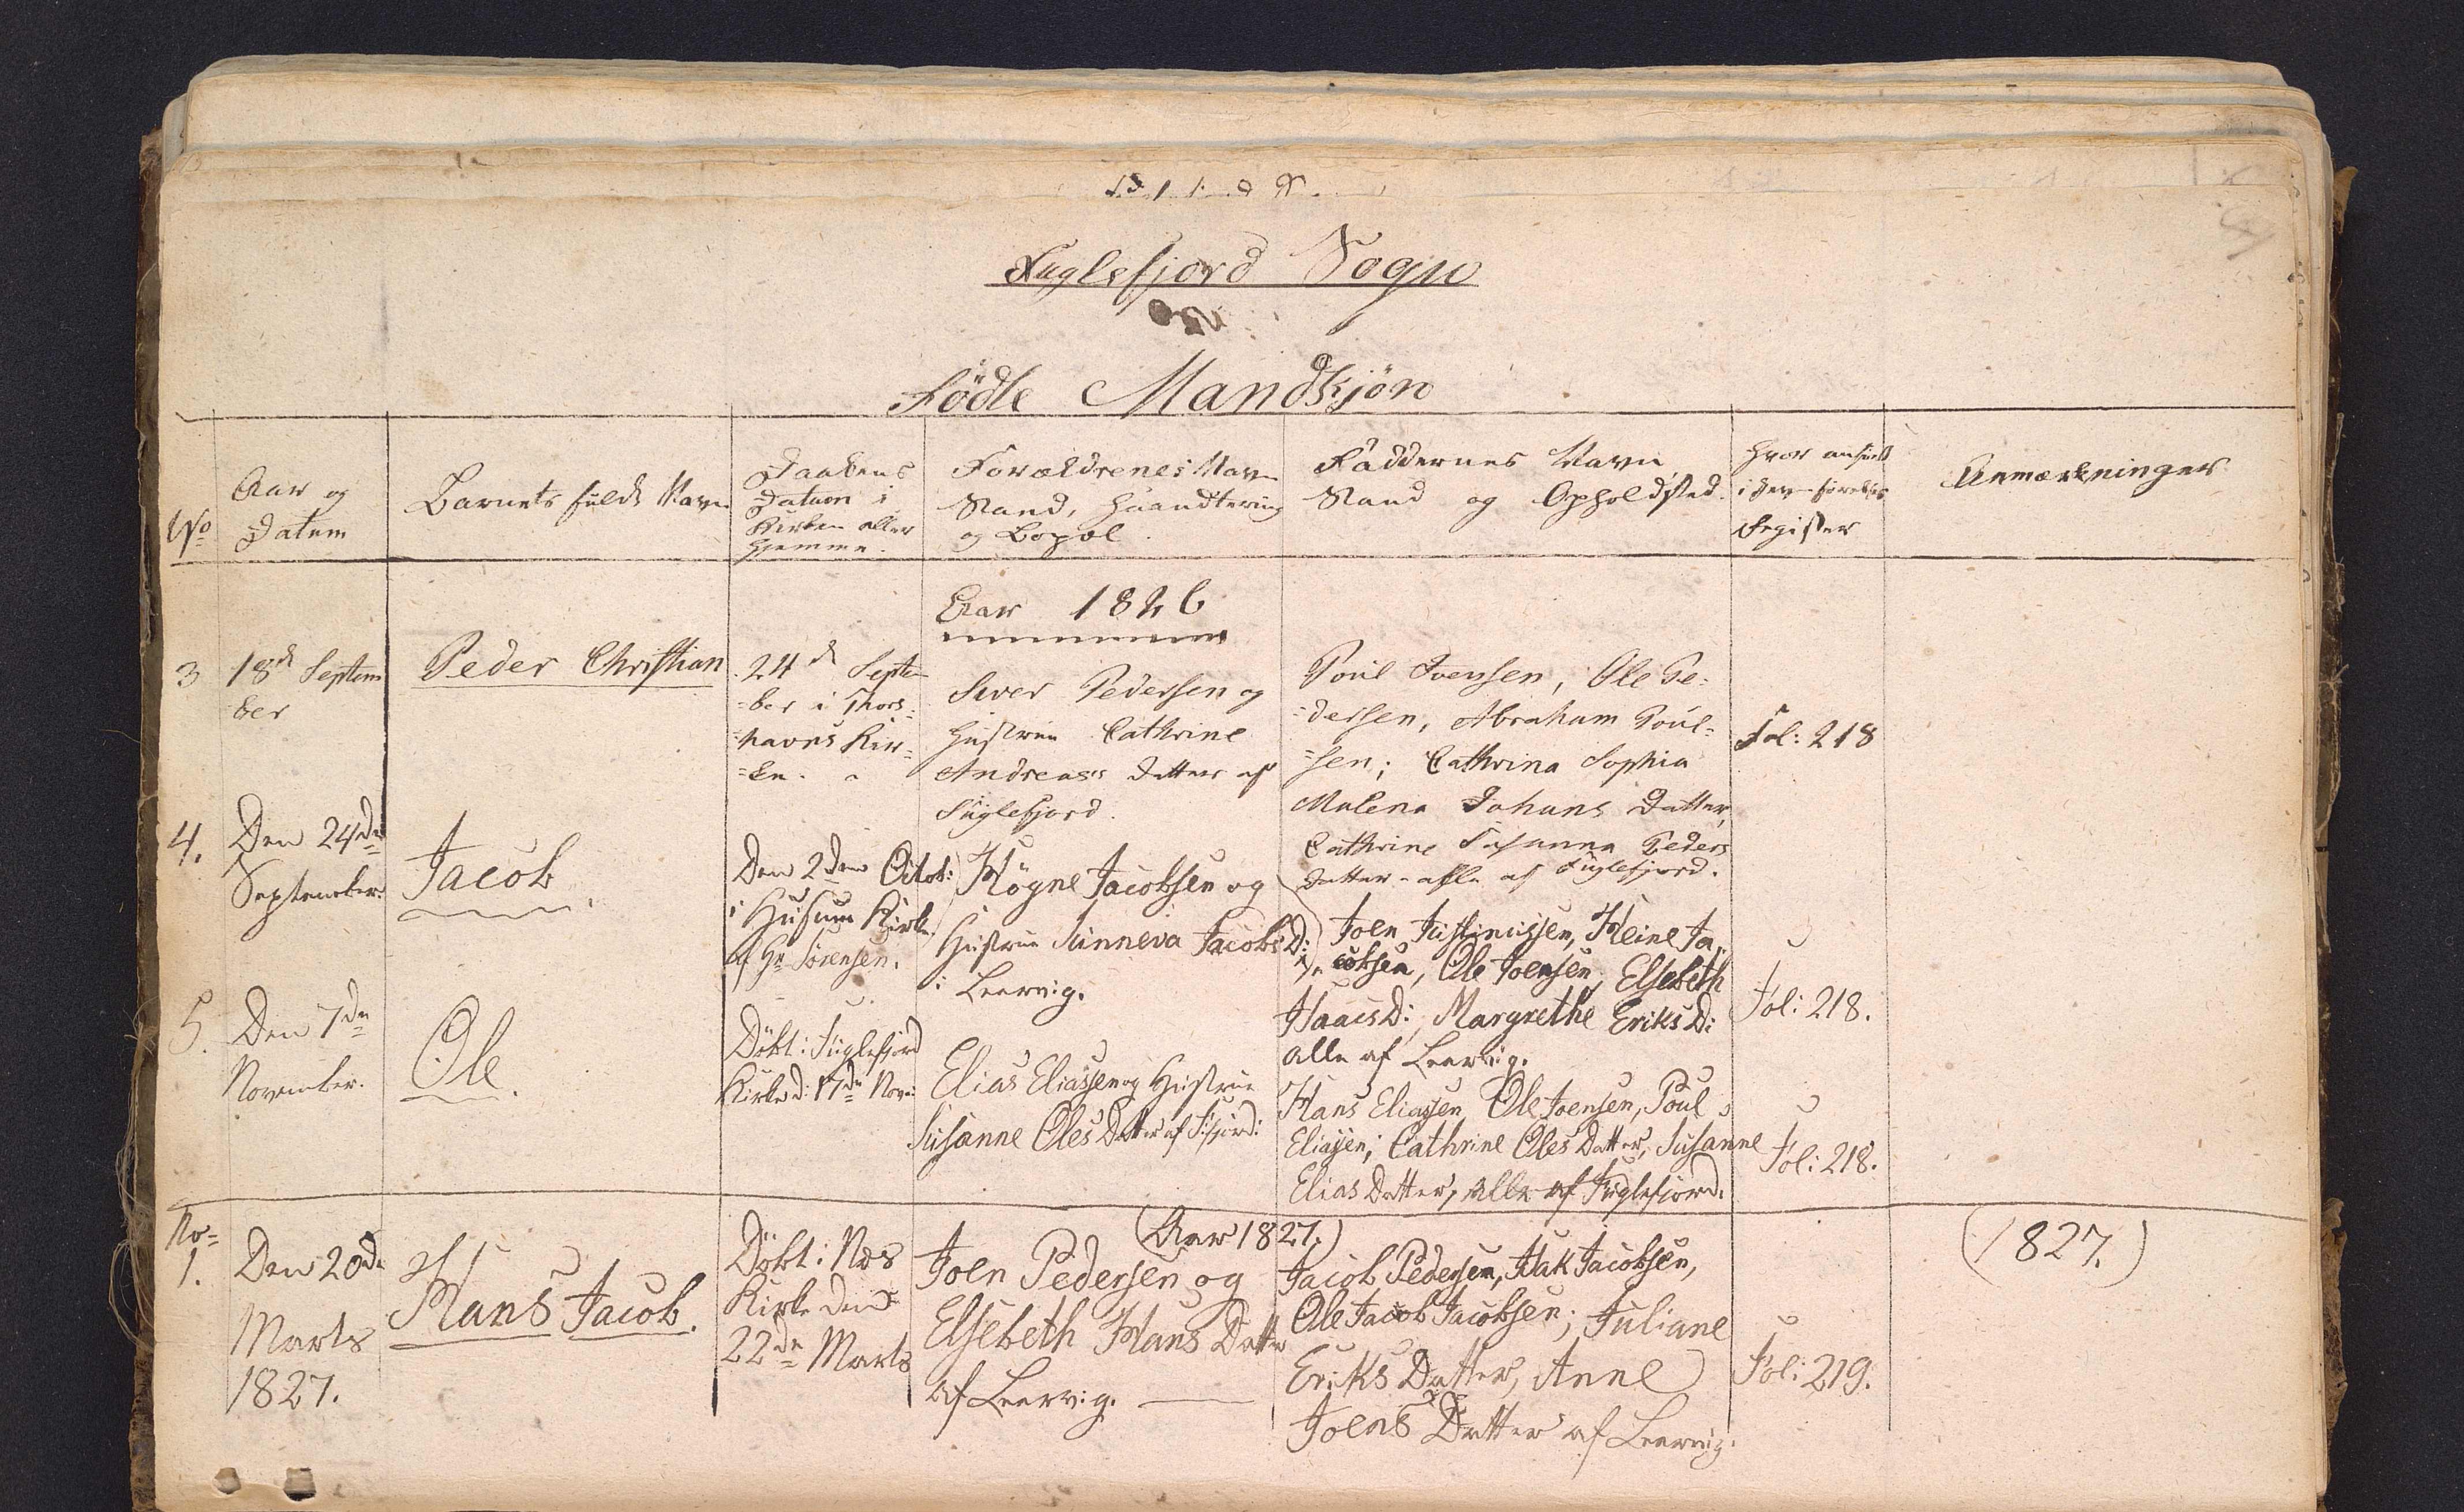 Fuglefjord Sogn
Födte Mandkjön
No
Aar og
Datum
Barnets fulde Navn
Daabens
Datum i
Kirken eller
Hjemme.
Forældrenes Navn
Stand, Haandtering
og Bopæl.
Faddernes Navn
Stand og Opholdsted.
Hvor anfört
i Jevnförelses
Register
Anmærkninger
Aar 1826
3
18de Septem
ber
Peder Christian
24de Septe
=ber i Thors=
=havns Kir=
=ke.
Siver Pedersen og
Hustrue Cathrine
Andreas's Datter af
Fuglefjord.
Poul Ivensen, Ole Pe=
=dersen, Abraham Poul=
=sen; Cathrina Sophia
Malena Johans Datter,
Cathrine Susanna Peders
Datter - alle af Fuglefjord.
Fol: 218
4.
Den 24de
September.
Jacob.
Den 2den Octob:
i Husum Kirke.
af Hr Sörensen.
Högne Jacobsen og
Hustrue Sunneva Jacobs D:
i Leervig.
Joen Justinussen, Heine Ja,,
cobsen, Ole Joensen, Elsebeth
Isaacs D:, Margrethe Eriks D:
alle af Leervig.
Fol: 218.
5.
Den 7de
November.
Ole.
Döbt i Fuglefjord
Kirke d: 17de Nov:
Elias Eliassen og Hustrue
Susanne Oles Datter af F:fjord:
Hans Eliassen, Ole Joensen, Poul
Eliassen; Cathrine Oles Datter, Susanne
Elias Datter, alle af Fuglefjord.
Fol: 218.
(Aar 1827.)
No=
1.
Den 20de
Marts
1827.
Hans Jacob.
Döbt i Næs
Kirke den
22de Marts
Joen Pedersen og
Elsebeth Hans Datter
af Leervig.
Jacob Pedersen, Isak Jacobsen,
Ole Jacob Jacobsen; Juliane
Eriks Datter, Anne
Joens Datter af Leervig.
Fol: 219.
(1827.)